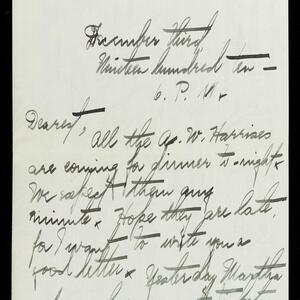 December third
Nineteen hundred ten —
6. P. M.
Dearest,
all the A. W. Harrises
are coming for dinner to-night.
We expect them any
minute. Hope they are late,
for I want to write you a
good letter. Yesterday Martha